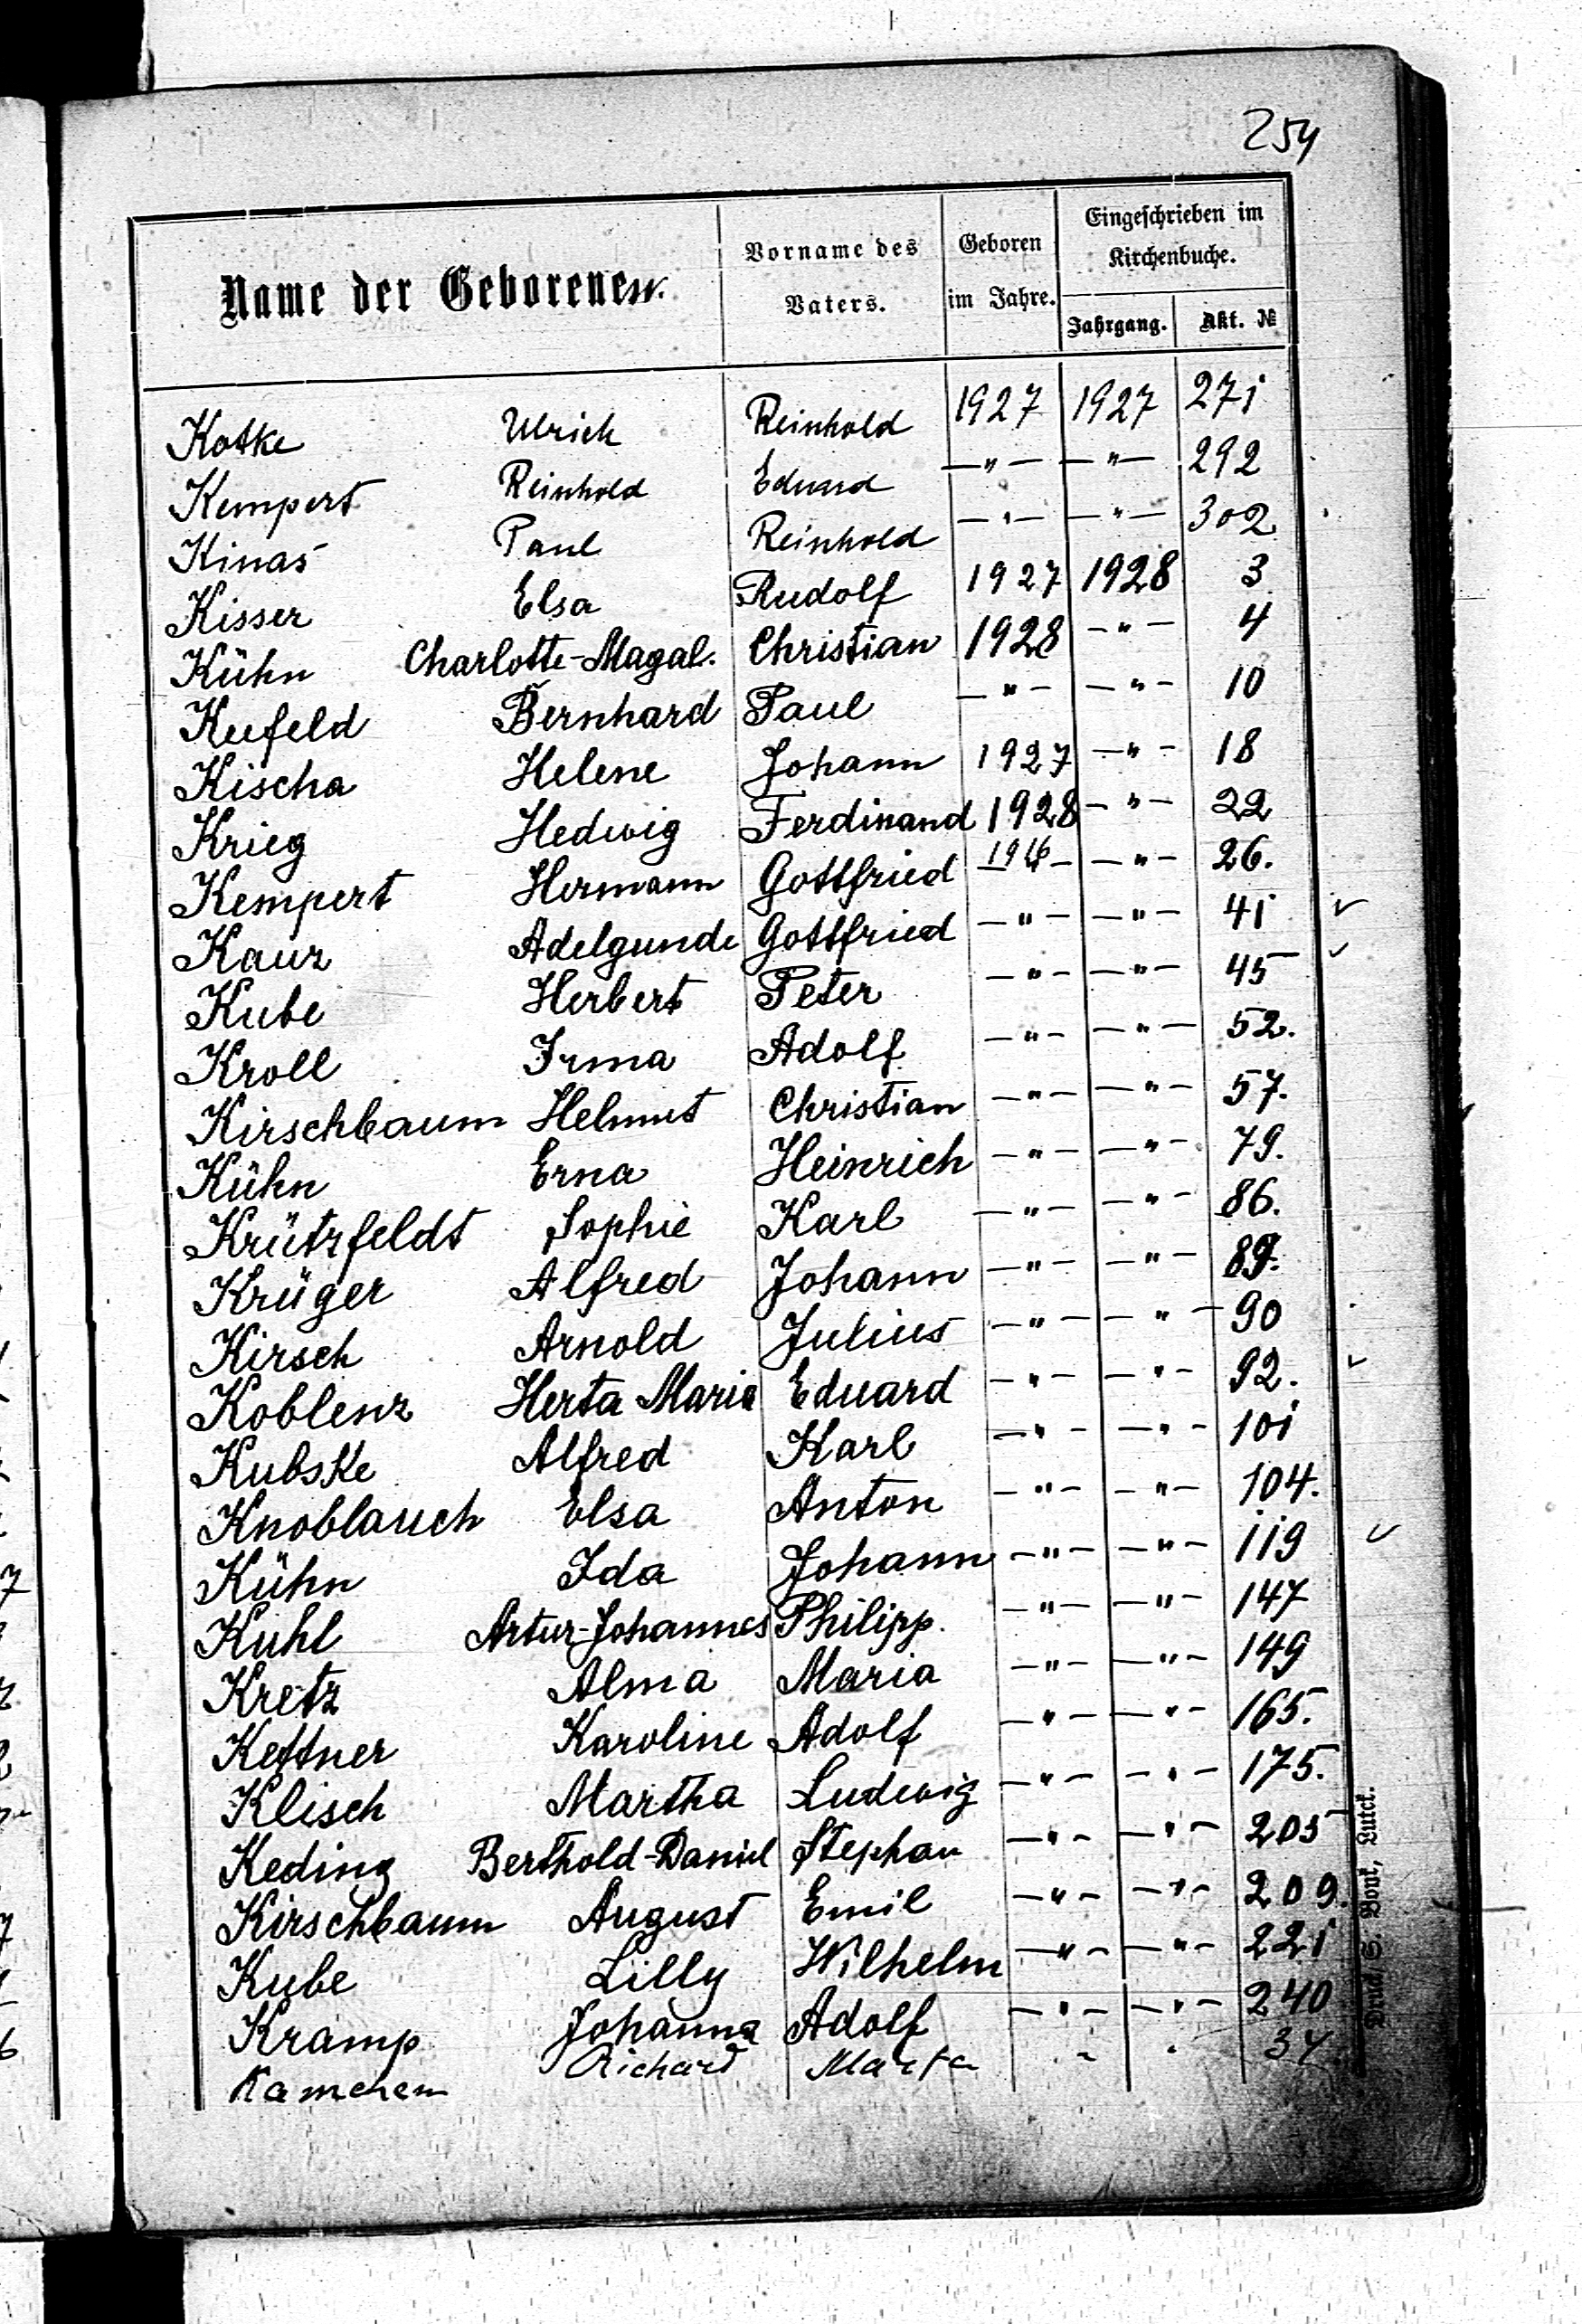 254
Name der Geborenen.
Vorname des Vaters.
Geboren im Jahre.
Eingeschrieben im Kirchenbuche.
Jahrgang.
Akt. №
Kotke Ulrich Reinhold 1927 1927 271
Kempert Reinhold Eduard —"— —"— 292
Kinas Paul Reinhold —"— —"— 302
Kisser Elsa Rudolf 1927 1928 3
Kühn Charlotte-Magal. Christian 1928 —"— 4
Kufeld Bernhard Paul —"— —"— 10
Kischa Helene Johann 1927 —"— 18
Krieg Hedwig Ferdinand 1928 —"— 22
Kempert Hermann Gottfried —"— 26.
Kauz Adelgunde Gottfried —"— —"— 41 ✓
Kube Herbert Peter —"— —"— 45 ✓
Kroll Irma Adolf —"— —"— 52.
Kirschbaum Helmut Christian —"— —"— 57.
Kühn Erna Heinrich —"— —"— 79.
Krützfeldt Sophie Karl —"— —"— 86.
Krüger Alfred Johann —"— —"— 89.
Kirsch Arnold Julius —"— —"— 90
Koblenz Herta Maria Eduard —"— —"— 92. ✓
Kubske Alfred Karl —"— —"— 101
Knoblauch Elsa Anton —"— —"— 104.
Kühn Ida Johann —"— —"— 119 ✓
Kuhl Artur-Johannes Philipp. —"— —"— 147
Kretz Alma Maria —"— —"— 149
Kettner Karoline Adolf —"— —"— 165.
Klisch Martha Ludwig —"— —"— 175.
Keding Berthold-Daniel Stephan —"— —"— 205
Kirschbaum August Emil —"— —"— 209.
Kube Lilly Wilhelm —"— —"— 221
Kramp Johanna Adolf —"— —"— 240
Richard Marta " " 34
Druck S. Bonk, Luck.